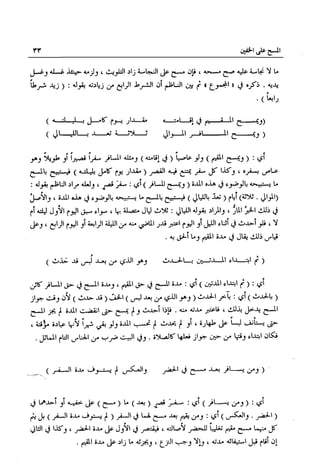 المسح على الخفين ٣٣
ما لا نجاسة عليه صح مسحه ، فإن مسح على النجاسة زاد التلويث ، ولزمه حينئذ غسله وغسل
يديه . ذكره في « المجموع » ثم بين الناظم أن الشرط الرابع من زيادته بقوله : ( زيد شرطاً
رابعاً ) .
( ويمسح المقيم في إقامته مقدار يوم كامل بليلته )
( ويمسح المسافر الموالي ثلاثة تعد بالليالي )
أي : ( ويمسح المقيم ) ولو عاصياً ( في إقامته ) ومثله المسافر سفراً قصيراً أو طويلاً وهو
عاص بسفره ، وكذا كل سفر يمتنع فيه القصر ( مقدار يوم كامل بليلته ) فيستبيح بالمسح
ما يستبيحه بالوضوء في هذه المدة ( ويمسح المسافر ) أي : سفر قصر ، ولعله مراد الناظم بقوله :
( الموالي . ثلاثة ) أيام ( تعد بالليالي ) فيستبيح بالمسح ما يستبيحه بالوضوء في هذه المدة ، والأصل
في ذلك الخبر المار ، والمراد بقوله الليالي : ثلاث ليال متصلة بها ، سواء سبق اليوم الأول ليلته أم
لا ، فلو أحدث في أثناء الليل أو اليوم اعتبر قدر الماضي منه من الليلة الرابعة أو اليوم الرابع ، وعلى
قياس ذلك يقال في مدة المقيم وما ألحق به .
( ثم ابتداء المدتين بالحدث وهو الذي من بعد لبس قد حدث )
أي : ( ثم ابتداء المدتين ) أي : مدة المسح في حق المقيم ، ومدة المسح في حق المسافر كائن
( بالحدث ) أي : بآخر الحدث ( وهو الذي من بعد لبس ) الخف ( قد حدث ) لأن وقت جواز
المسح يدخل بذلك ، فاعتبر مدته منه . فإذا أحدث ولم يمسح حتى انقضت المدة لم يجز المسح
حتى يستأنف لبساً على طهارة ، أو لم يحدث لم تحسب المدة ولو بقي شهراً لأنها عبادة مؤقتة ،
فكان ابتداء وقتها من حين جواز فعلها كالصلاة . وفي البيت ضرب من الجناس التام المماثل .
( ومن يسافر بعد مسح في الحضر والعكس لم يستوف مدة السفر )
أي : ( ومن يسافر ) أي : سفر قصر ( بعد ) ما ( مسح ) على خفيه أو أحدهما في
( الحضر . والعكس ) أي : ومن يقيم بعد مسح لهما في السفر ( لم يستوف مدة السفر ) بل يتم
كل منهما مسح مقيم تغليباً للحضر لأصالته ، فيقتصر في الأول على مدة الحضر ، وكذا في الثاني
إن أقام قبل استيفائه مدته ، وإلا وجب النزع ، ويجزئه ما زاد على مدة المقيم .